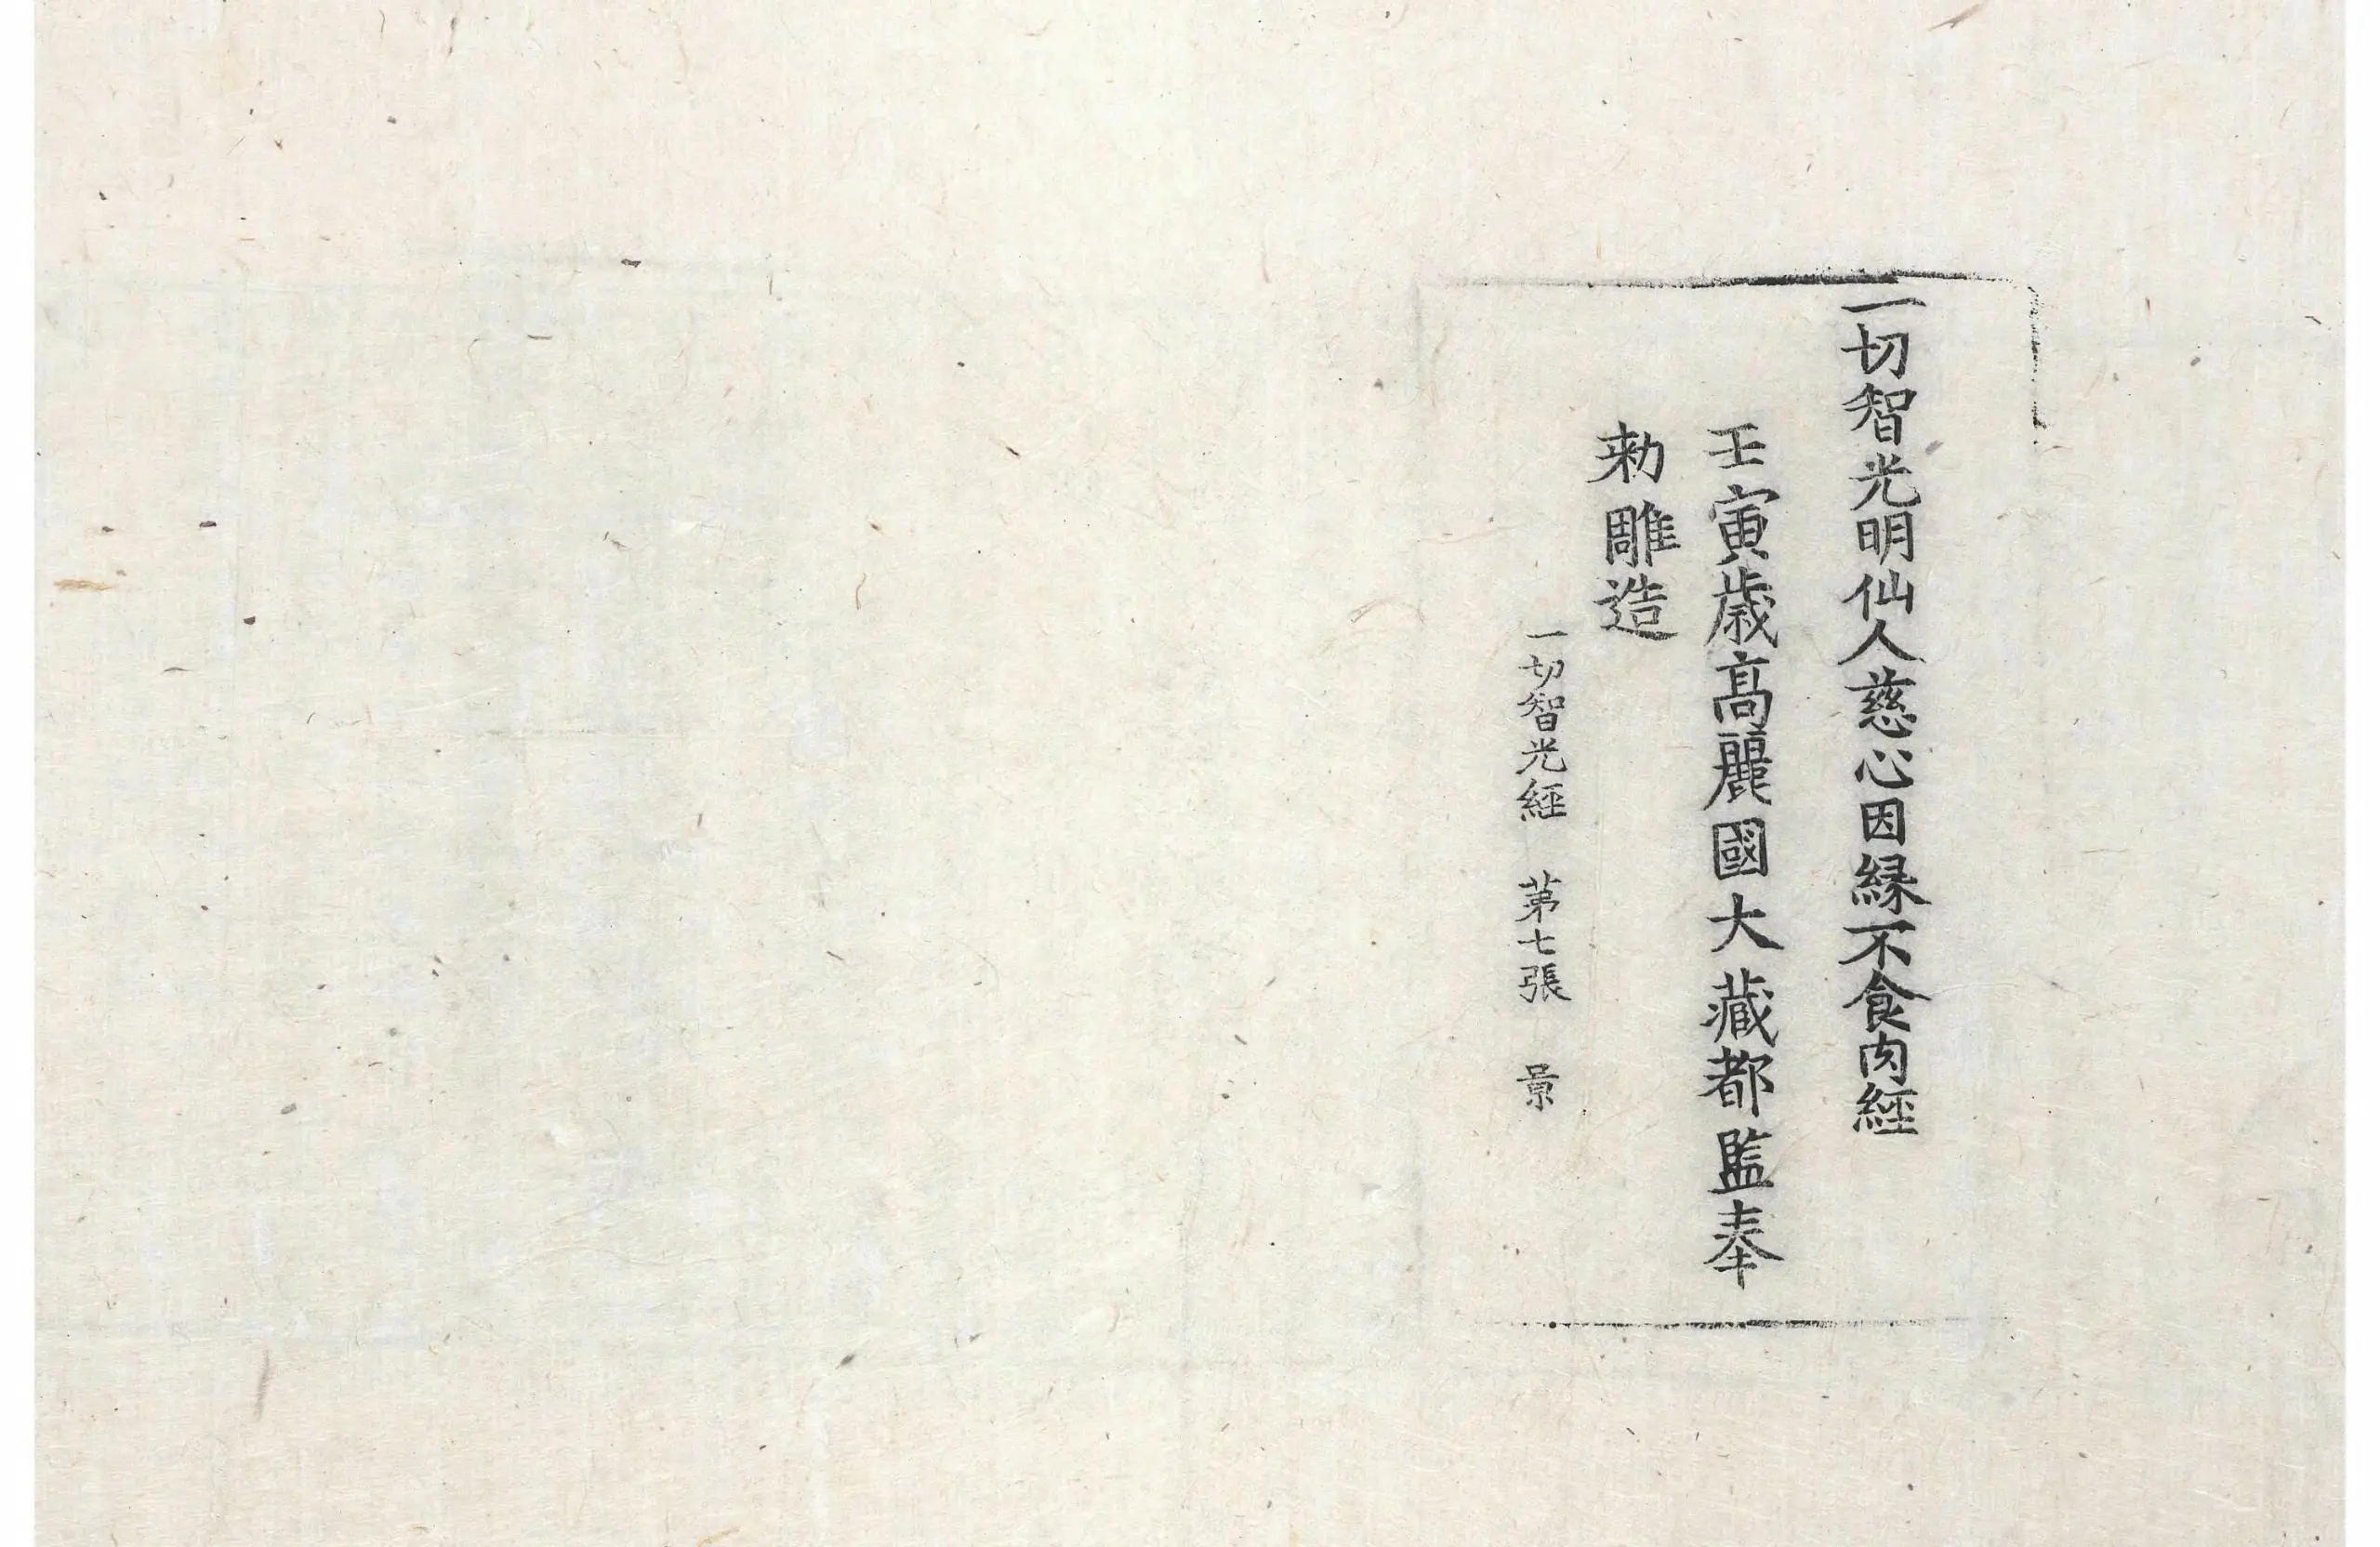 一切智光明仙人慈心因縁不食肉經
壬寅歳高麗國大藏都監奉
勑雕造
一切智光經　苐七張　景